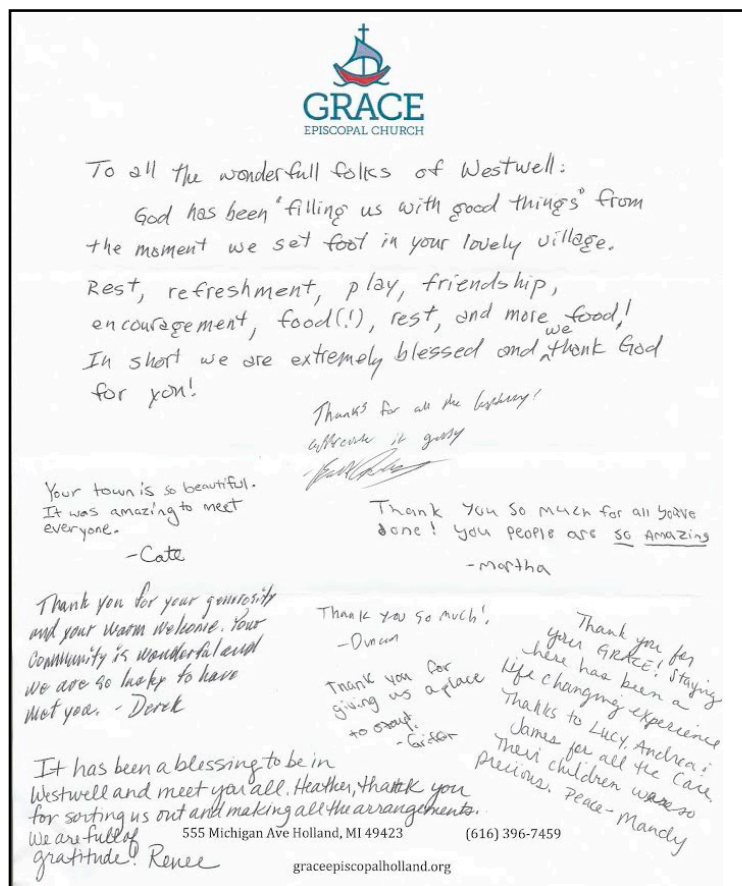 GRACE
EPISCOPAL CHURCH
To all the wonderfull folks of Westwell:
God has been "filling us with good things" from
the moment we set foot in your lovely village.
Rest, refreshment, play, friendship,
encouragement, food(!), rest, and more food!
In short we are extremely blessed and we thank God
for you!
Thanks for all the
it
Your town is so beautiful.
It was amazing to meet
everyone.
-Cate
Thank you so much for all youve
done! You people are so Amazing
-Martha
Thank you for your generosity
and your warm welcome. Your
Community is wonderful and
we are so lucky to have
met you. - Derek
Thank you so much!
-Duncan
Thank you for
giving us a place
to stay!
-Griffin
Thank you for
your GRACE! Staying
here has been a
life changing experience
Thanks to Lucy, Andrea &
James for all the Care.
Their children were so
precious. Peace - Mandy
It has been a blessing to be in
Westwell and meet you all. Heather, thank you
for sorting us out and making all the arrangements.
We are full of
gratitude! Renee
555 Michigan Ave Holland, MI 49423 (616) 396-7459
graceepiscopalholland.org